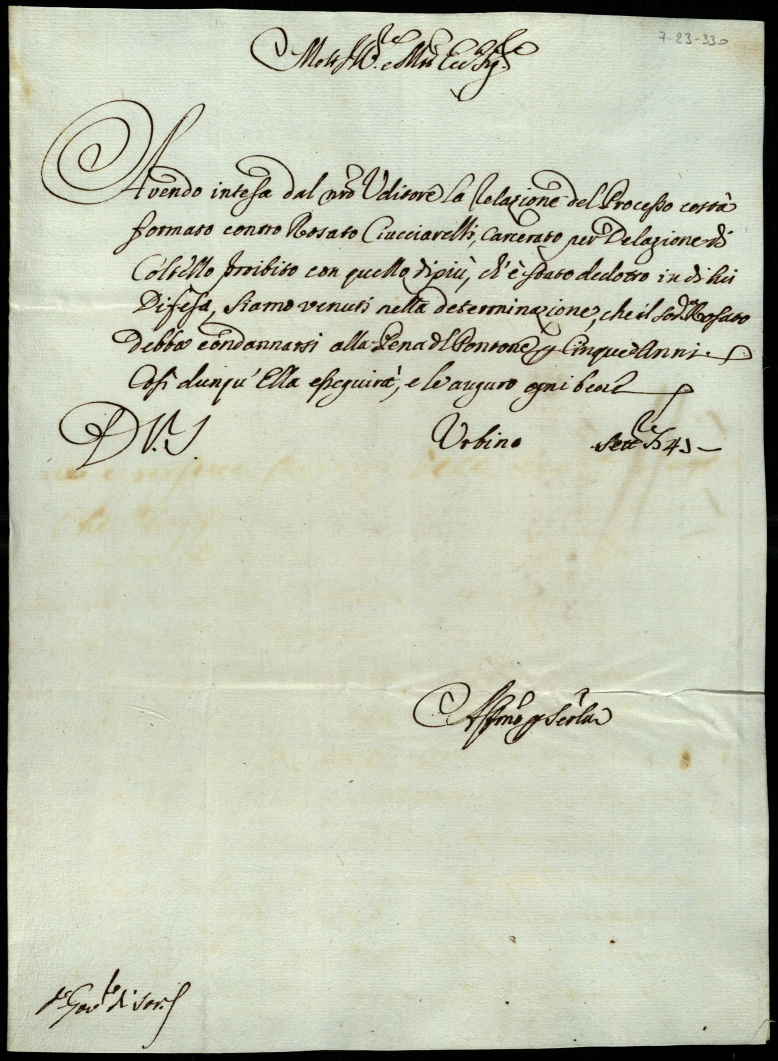 7-23-330
Molt Ill.re e Mto Ecc.te Sig.re
Avendo intesa dal nr̃o Uditore la Relazione del Processo costà
formato contro Rosato Ciucciarelli, carcerato per Delazione di
Coltello proibito con quello di più, ch'è stato dedotto in di lui
Difesa, siamo venuti nella determinazione, che il sod.o Rosato
debba condannarsi alla Pena del Pontone p Cinque Anni.
Così dunqu' Ella eseguirà, e le auguro ogni bene
D V.S. Urbino
Aff.mo p Serla
Gov.re di